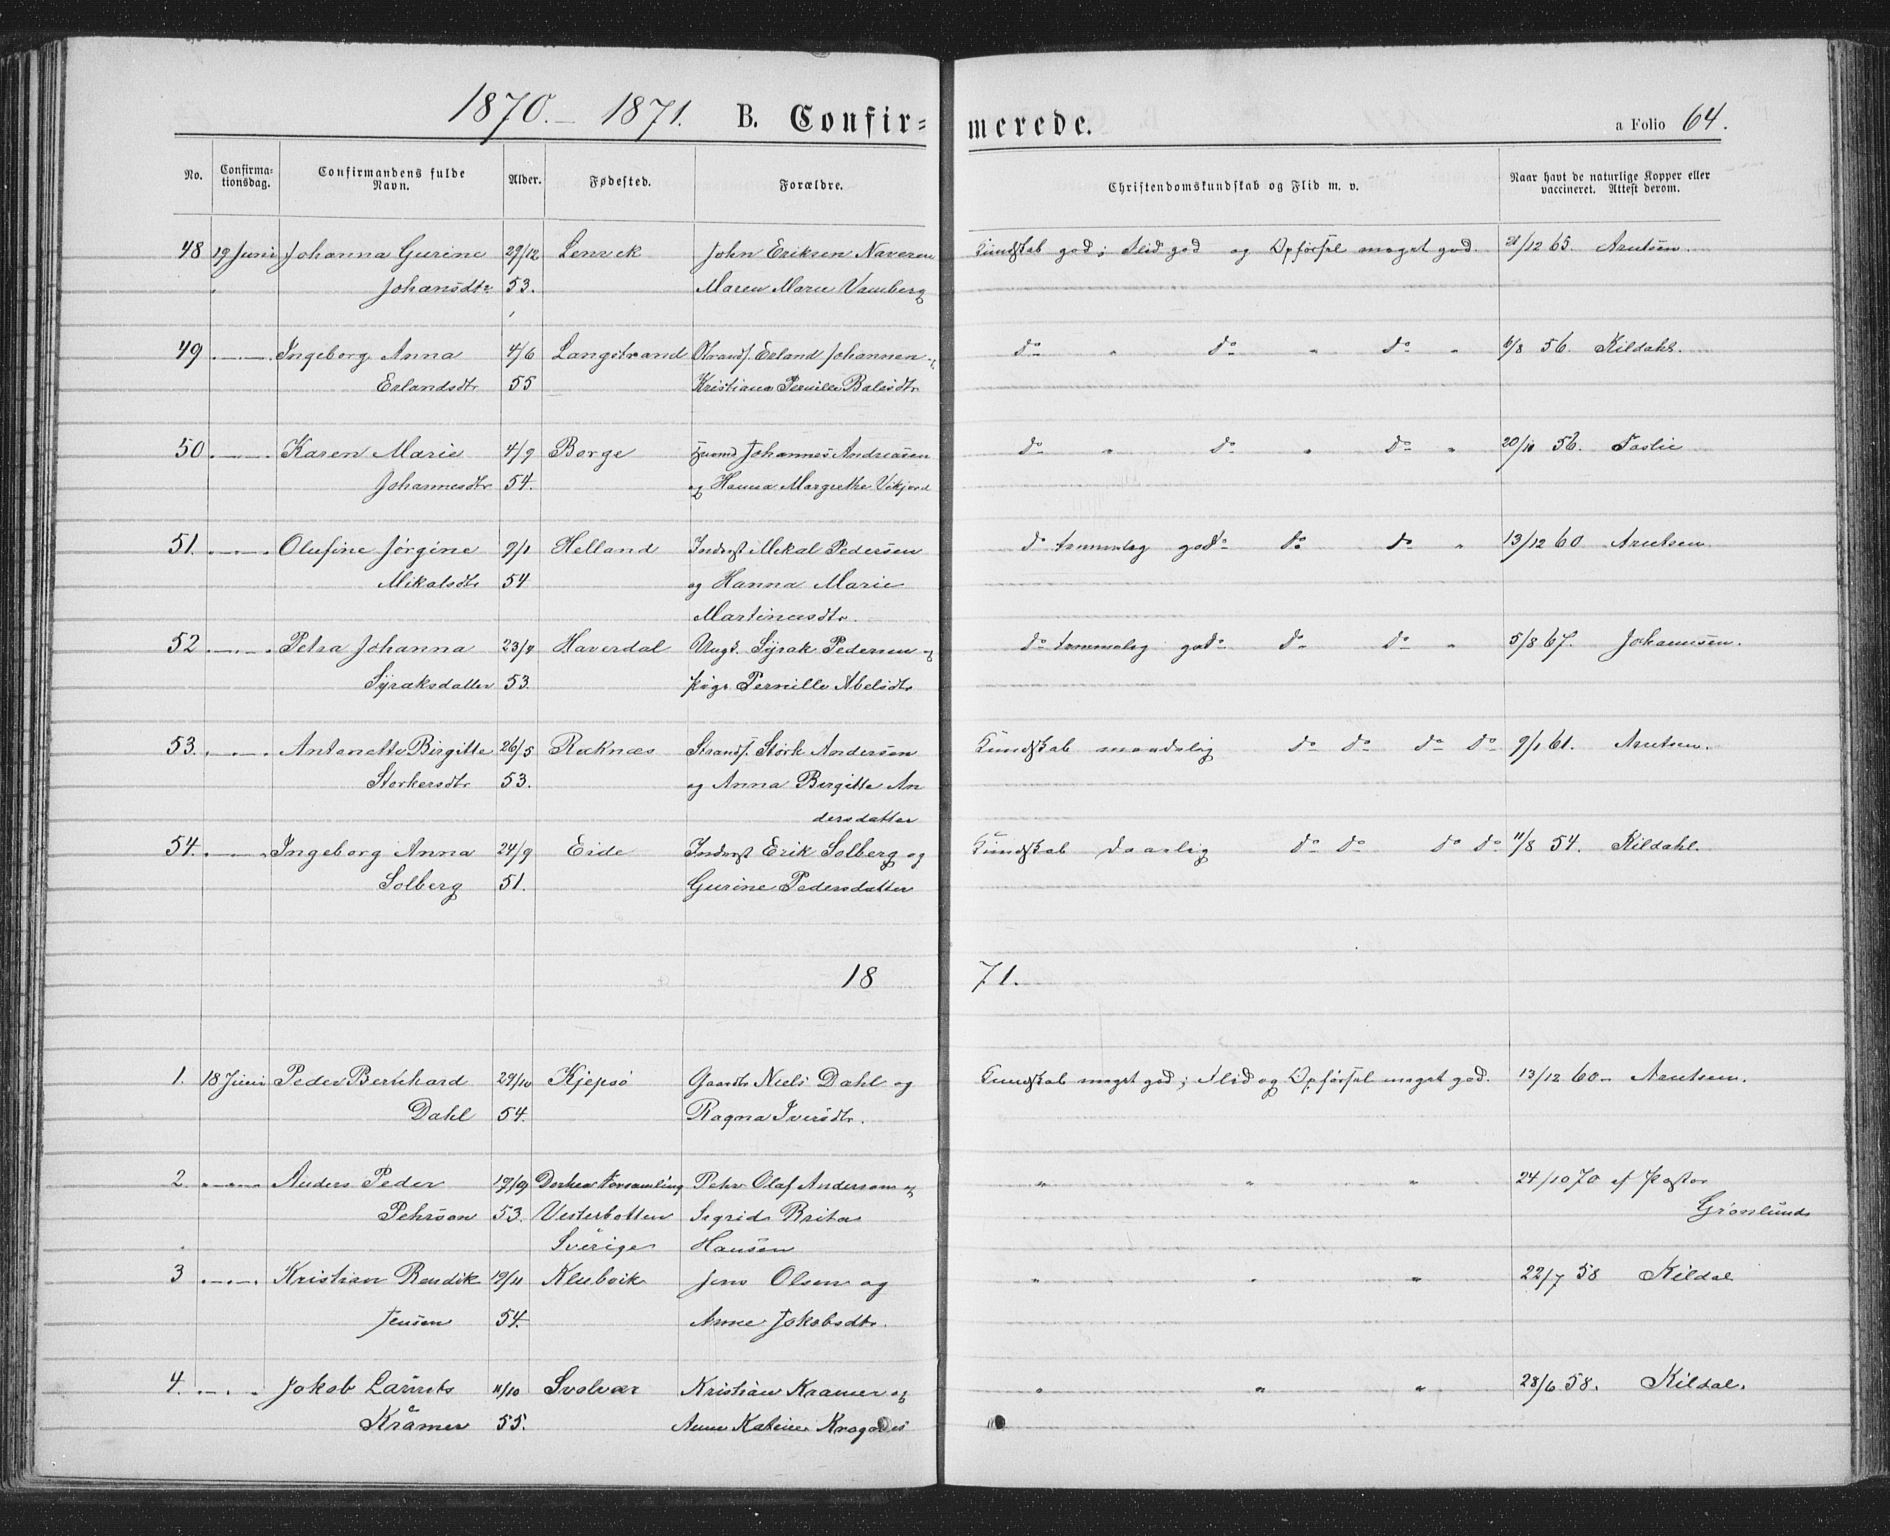 1870. – 1871. B. Confirmerede. a Folio 64.
No. Confirmationsdag. Confirmandens fulde Navn. Alder. Fødested. Forældre. Christendomskundskab og Flid m. v. Naar havt de naturlige Kopper eller vaccineret. Attest derom.
48 19 Juni Johanna Gurine 29/12 Lenvek John Eriksen Naveren Kundskab god; Flid god og Opførsel meget god. 21/12 65. Arntsen.
Johansdtr 53. Maren Marie Vamberg
49 Ingeborg Anna 4/6 Langstrand Strands. Erland Johannen 6/8 56. Kildahl.
Erlandsdtr 55 Kristiana Pernille Balsdtr
do do do
50 Karen Marie 4/9 Borge Johannes Andreasen do do do 20/10 56. Faslie
Johannesdtr 54. og Hanna Margrethe Vikjord
51. Olufine Jørgine 9/1 Helland Inderst Mekal Pedersen do temmelig god do do 13/12 60 Arntsen
Mikalsdtr 54 og Hanna Marie
Martinusdtr.
52 Petra Johanna 23/4 Haverdal Ungk. Syrak Pedersen og do temmelig god do do 5/8 67. Johannsen.
Syraksdatter 53. pige Pernille Abelsdtr
53. Antonette Birgitte 26/5 Røknæs Strands. Stork Andersen Kundskab maadelig do do do do 9/1 61. Arntsen.
Storkersdtr 53. og Anna Birgitte An
dersdatter
54. Ingeborg Anna 24/9 Eide Inderst Erik Solberg og Kundskab daarlig do do do do 11/8 54. Kildahl.
Solberg 51. Gurine Pedersdatter
18 71.
1. 18 Juni Peder Bernhard 29/10 Kjepsø Gaardb Niels Dahl og Kundskab meget god; Flid og Opførsel meget god. 13/12 60 Arntsen.
Dahl 54. Ragna Iversdtr.
2. Anders Peder 17/9 Dorthea Forsamling Pehr Olaf Anderson og " " " 24/10 70 af Pastor
Pehrson 53. Vesterbotten Sigrid Brita Grønlund
Sverige Hansen
3 Kristian Bendik 19/11 Klubvik Jens Olsen og " " " 22/7 58 Kildal
Jensen 54. Anne Jakobsdtr.
4. Jakob Laurits 11/10 Svolvær Kristian Kramer og " " " 28/6 58. Kildal.
Kråmer 55. Anne Katrine